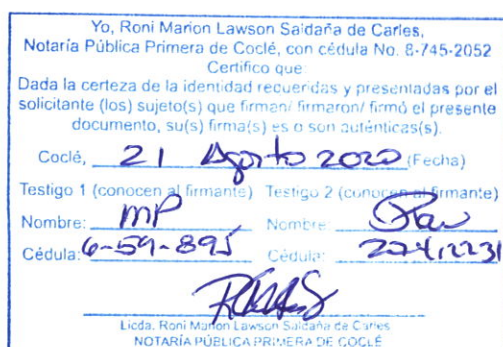 Yo, Roni Marion Lawson Saldaña de Carles,
Notaría Pública Primera de Coclé, con cédula No. 8-745-2052
Certifico que:
Dada la certeza de la identidad recueridas y presentadas por el
solicitante (los) sujeto(s) que firman/ firmaron/ firmó el presente
documento, su(s) firma(s) es o son auténticas(s).
Coclé, 21 Agosto 2020 (Fecha)
Testigo 1 (conocen al firmante) Testigo 2 (conocen al firmante)
Nombre: MP Nombre:
Cédula: 6-59-895 Cédula:
Licda. Roni Marion Lawson Saldaña de Carles
NOTARÍA PÚBLICA PRIMERA DE COCLÉ